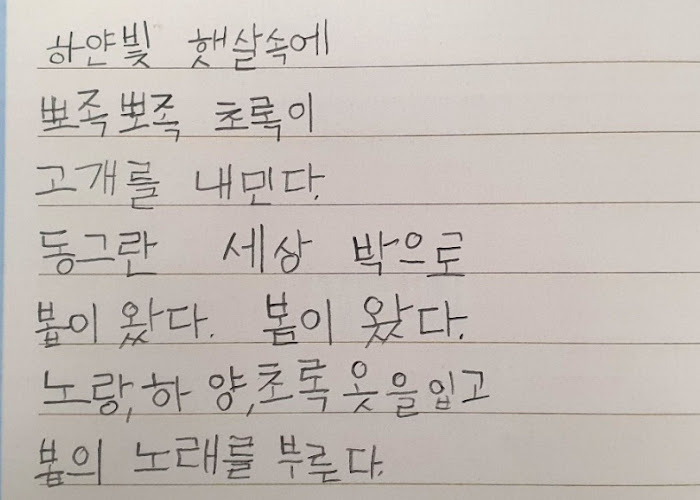 하얀빛 햇살속에
뾰족뾰족 초록이
고개를 내민다.
동그란 세상 박으로
봄이 왔다. 봄이 왔다.
노랑,하 양,초록 옷을 입고
봄의 노래를 부룬다.